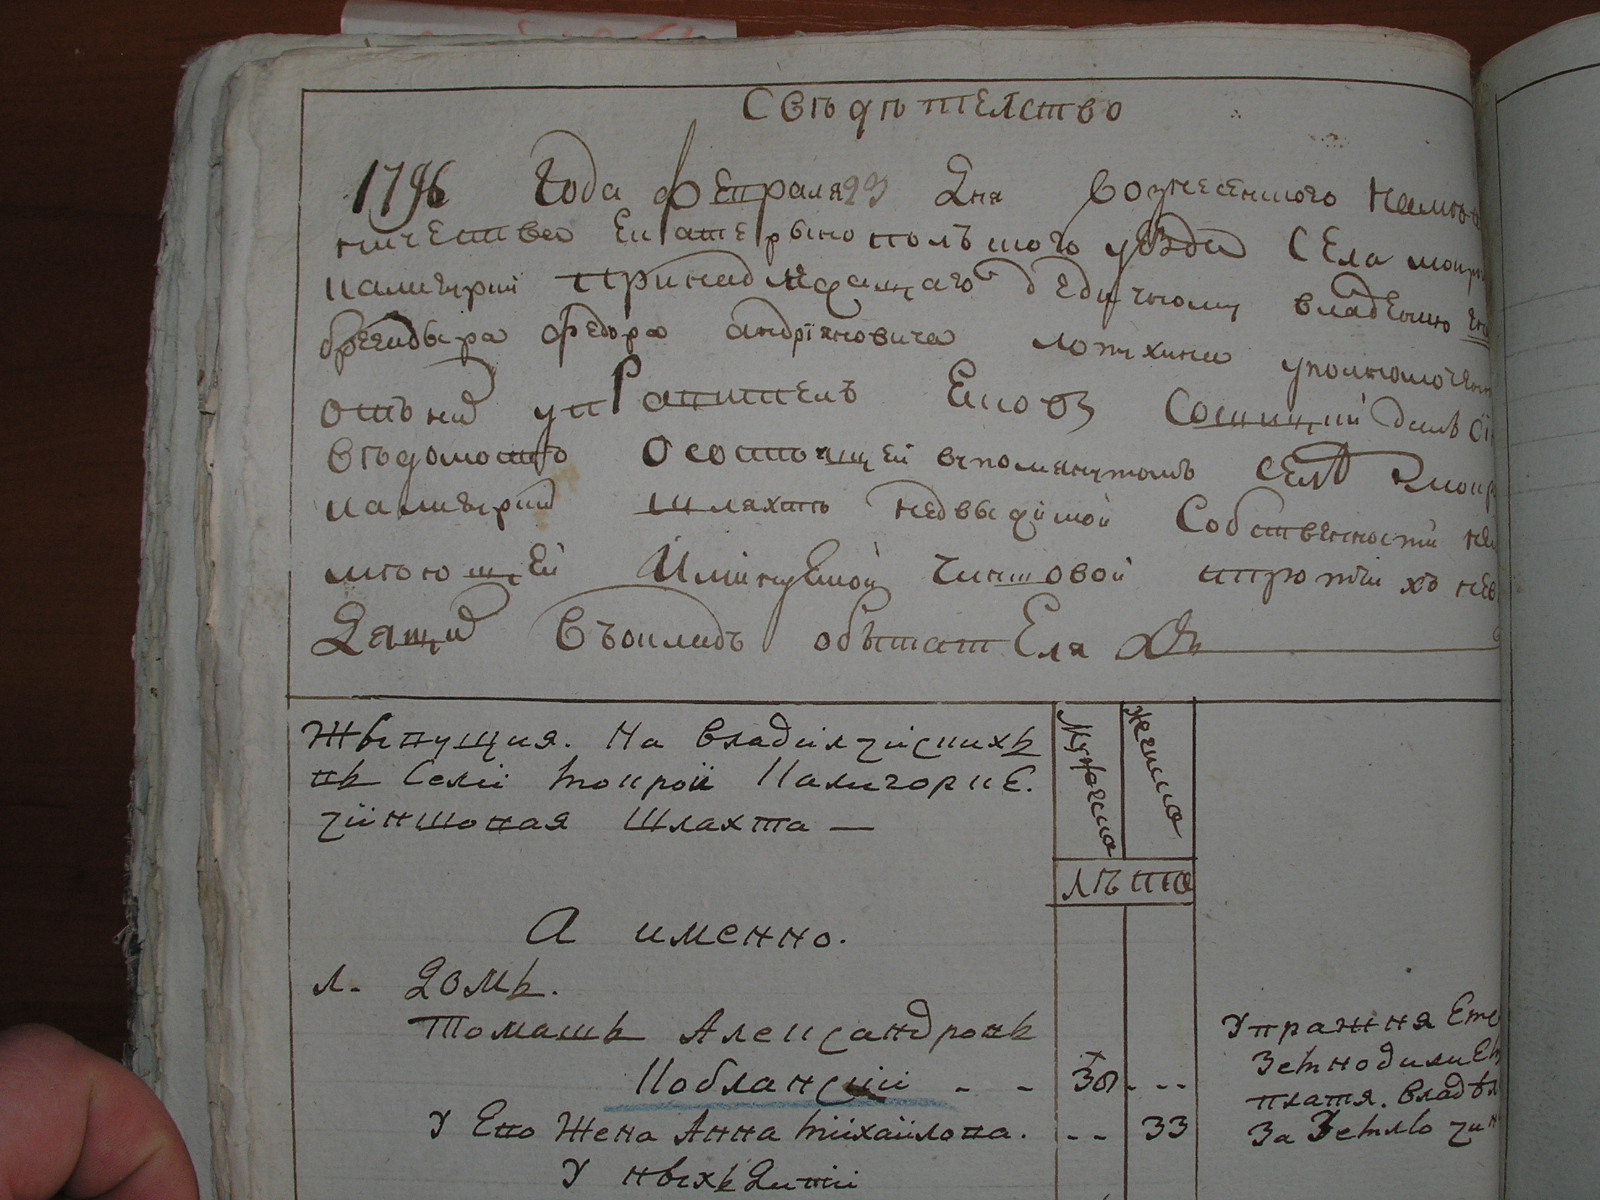 Свѣдѣтелство
1796 Года февраля 23 Дня Вознесенского Наместъ
ничества Екатерынополъского уѣзда Села мокрой
калигурки принадлежащаго дедичному владению
бреѣгадыра федора андрїяновича лопухина уполномоченный
отъ него управитель Сосницкий далъ
вѣдомость о состоящей вупомянутомъ селе мокрой
калигурки шляхты недвыжимой Собственности не
меющей именуемой Чиншовой
въокладъ обывателя
Жывущия. На владилчискихъ
въ Селѣ Мокрой Калигорке.
чиншовая Шляхта —
Мужеска
женска
лѣта
А именно.
1. Домъ.
Томашъ Александровъ
Кобланский - - 38 - - -
У Его Жена Анна михайлова. - - 33
У ныхъ дити
Упражняете
Земледилие
платя. Владѣ
За Землю чин